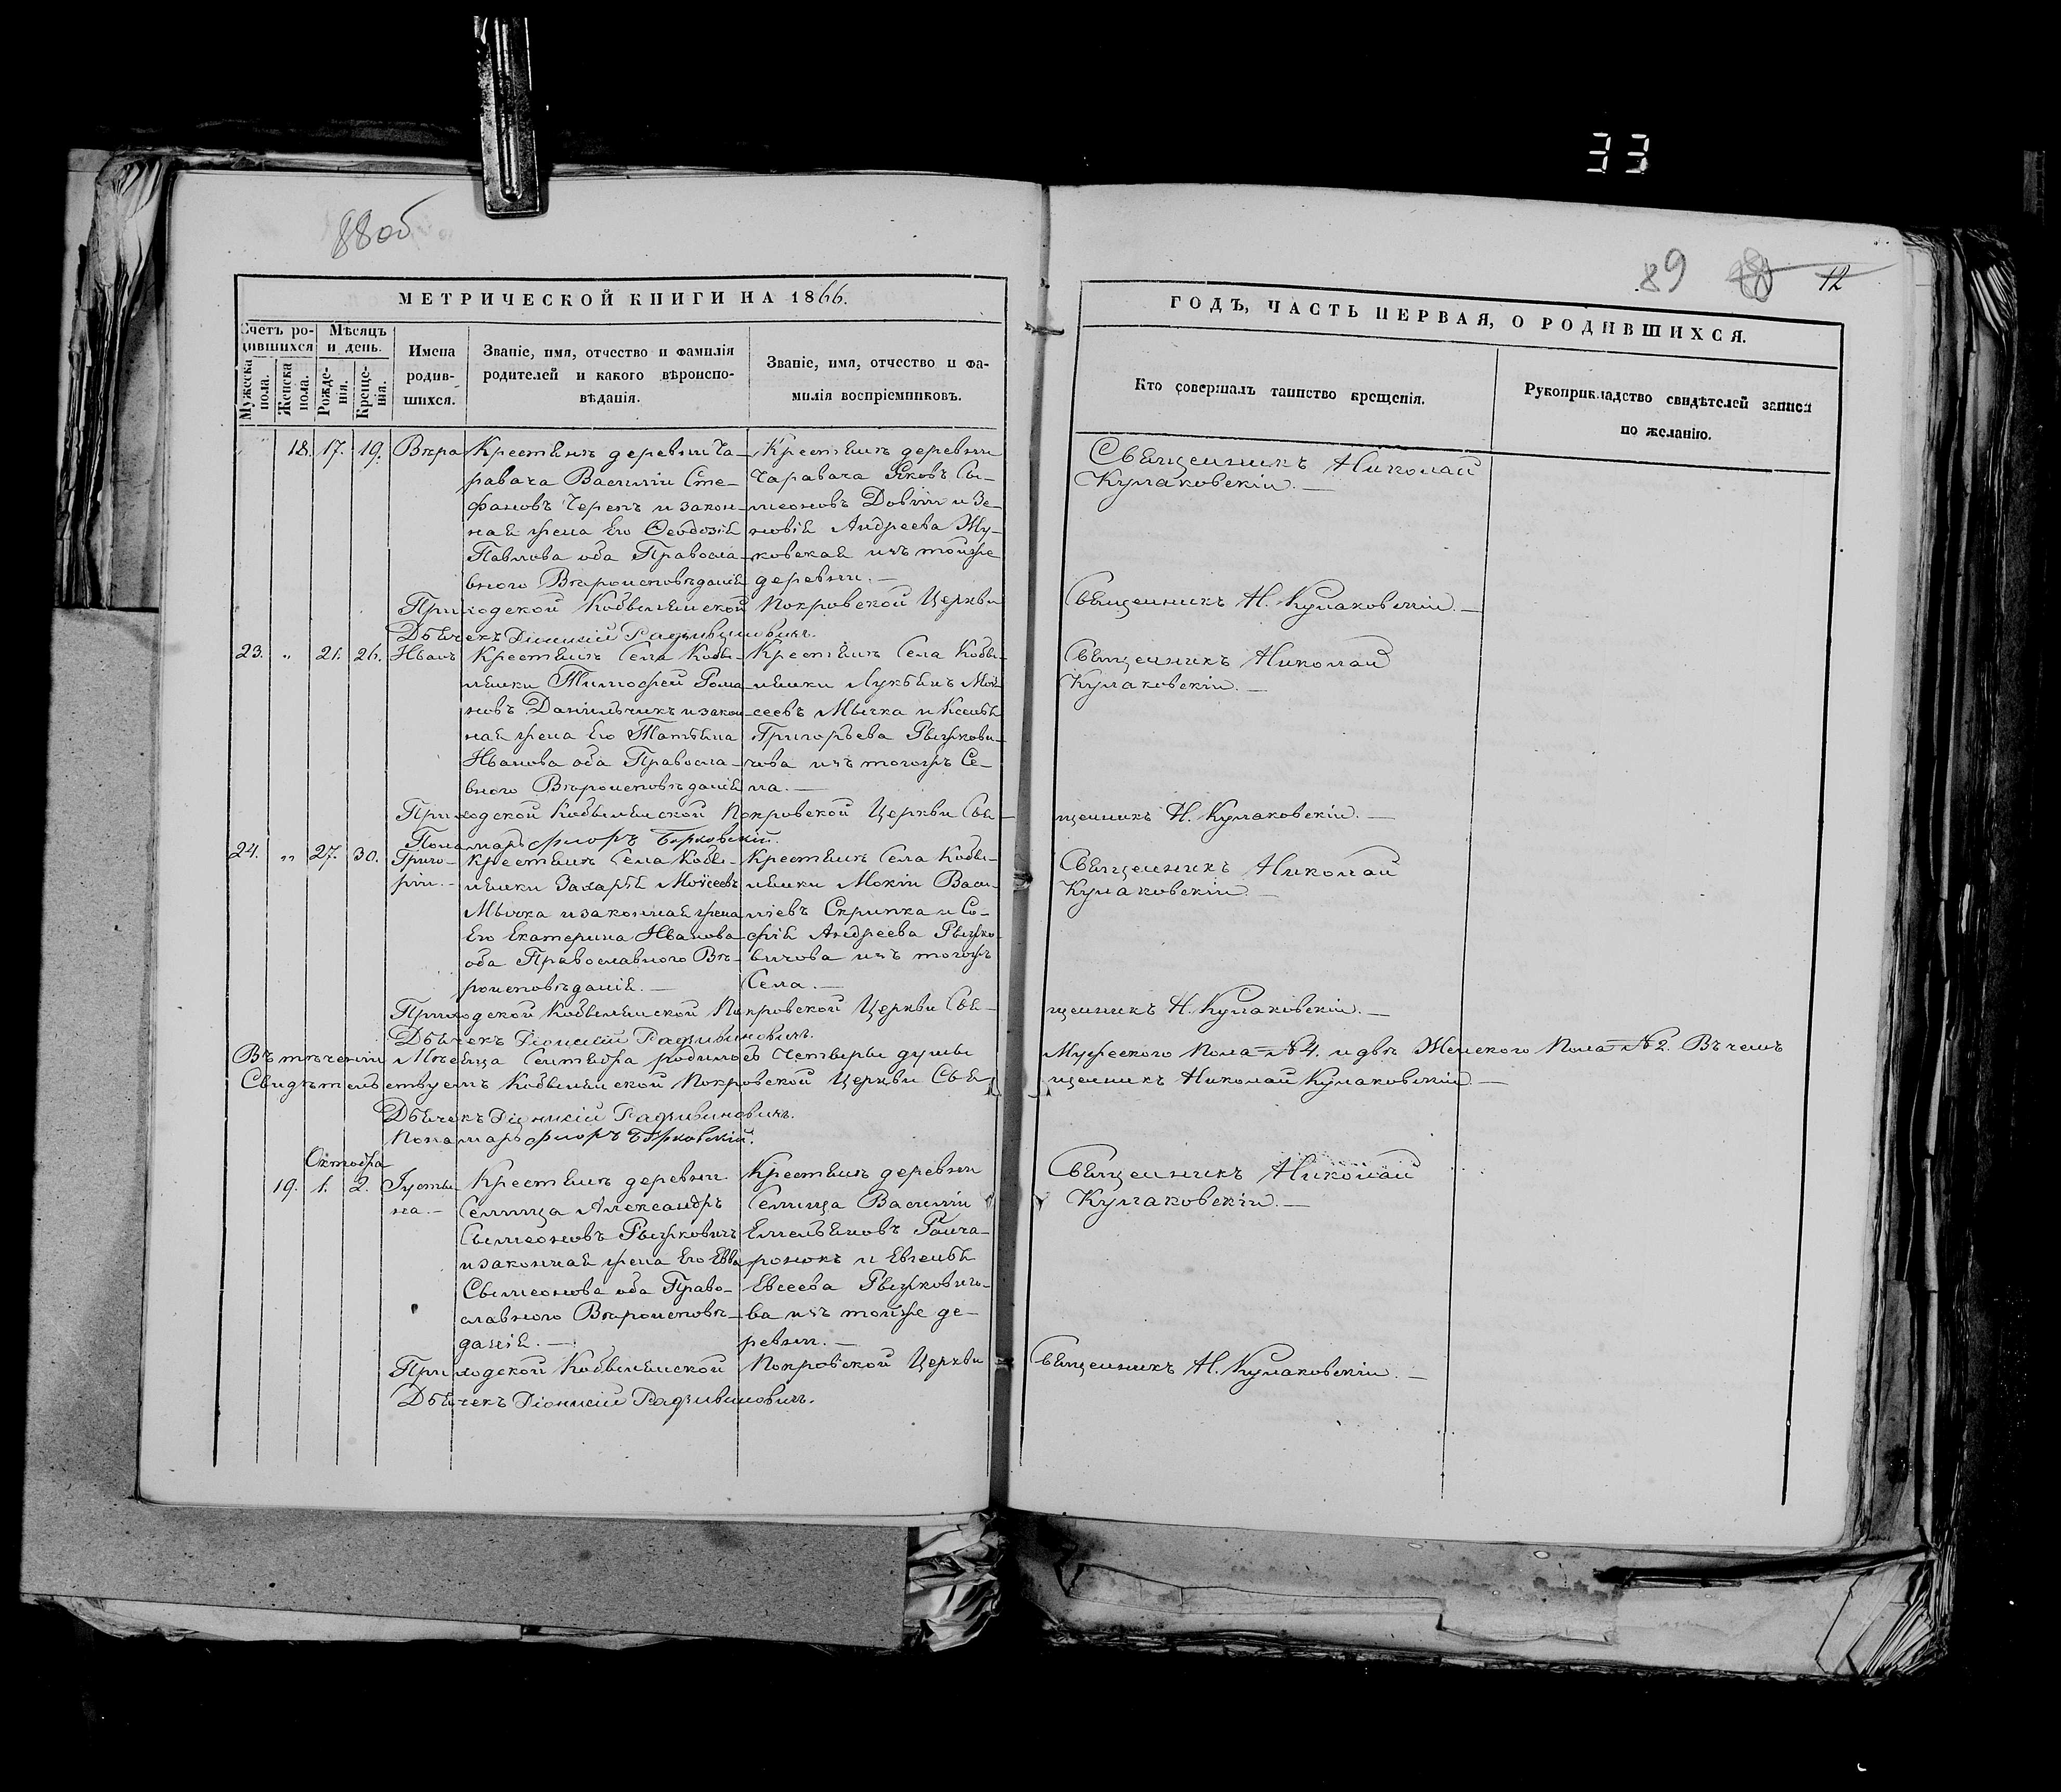 33
88об
89 12
МЕТРИЧЕСКОЙ КНИГИ НА 1866.
Счетъ ро-
дившихся
Мѣсяцъ
и день.
Мужеска
пола.
Женска
пола.
Рожде-
нія.
Креще-
нія.
Имена
родив-
шихся.
Званіе, имя, отчество и фамилія
родителей и какого вѣроиспо-
вѣданія.
Званіе, имя, отчество и фа-
милія воспріемниковъ.
ГОДЪ, ЧАСТЬ ПЕРВАЯ, О РОДИВШИХСЯ.
Кто совершалъ таинство крещенія.
Рукоприкладство свидѣтелей записи
по желанію.
18. 17. 19. Вѣра
Крестьянъ деревни Ча-
равача Василій Сте-
фановъ Черепъ и закон-
ная жена Его Ѳеодосія
Павлова оба Правосла-
вного Вѣроисповѣданія
Крестьянъ деревни
Чаравача Яковъ Си-
меоновъ Довгій и Зе-
новія Андреева Жу-
ковская изъ тойже
деревни.—
Священникъ Николай
Кулаковскій.—
Приходской Кобылянской Покровской Церкви Священникъ Н. Кулаковскій.—
Дьячекъ Діонисій Радзивиновичъ.
23. „ 21. 26. Иванъ
Крестьянъ Села Кобы-
лянки Тимофей Рома-
новъ Данильчикъ и закон-
ная жена Его Татьяна
Иванова оба Правосла-
вного Вѣроисповѣданія
Крестьянъ Села Кобы-
лянки Лукьянъ Мой-
сеевъ Мычка и Ксенья
Григорьева Рыжкови-
чова изъ тогожъ Се-
ла.—
Священникъ Николай
Кулаковскій.—
Приходской Кобылянской Покровской Церкви Свя-
щенникъ Н. Кулаковскій.—
Понамарь Флоръ Борковскій.
24. „ 27. 30. Григо-
рій.—
Крестьянъ Села Кобы-
лянки Захарья Моисеевъ
Мычка и законная жена
Его Екатерина Иванова
оба Православного Вѣ-
роисповѣданія.—
Крестьянъ Села Кобы-
лянки Мокій Васи-
ліевъ Скрипка и Со-
фія Андреева Рыжко-
вичова изъ тогожъ
Села.—
Священникъ Николай
Кулаковскій.—
Приходской Кобылянской Покровской Церкви Свя-
щенникъ Н. Кулаковскій.—
Дьячекъ Діонисій Радзивиновичъ.
Въ тѣченіи Мѣсяца Сентября родилось Четыри душы Мужеского Пола=№4. и двѣ Женского Пола=№2. Въ чемъ
Свидѣтельствуемъ Кобылянской Покровской Церкви Свя-
щенникъ Николай Кулаковскій.—
Дьячекъ Діонисій Радзивиновичъ.
Понамарь Флоръ Борковскій.
Октября
19. 1. 2. Густы-
на.—
Крестьянъ деревни
Селища Александръ
Сымеоновъ Рыжковичъ
и законная жена Его Евва
Сымеонова оба Право-
славного Вѣроисповѣ-
данія.—
Крестьянъ деревни
Селища Василій
Емельяновъ Гонча-
ронокъ и Евгенья
Евсеева Рыжковичо-
ва изъ тойже де-
ревни.—
Священникъ Николай
Кулаковскій.—
Приходской Кобылянской Покровской Церкви Священникъ Н. Кулаковскій.—
Дьячекъ Діонисій Радзивиновичъ.